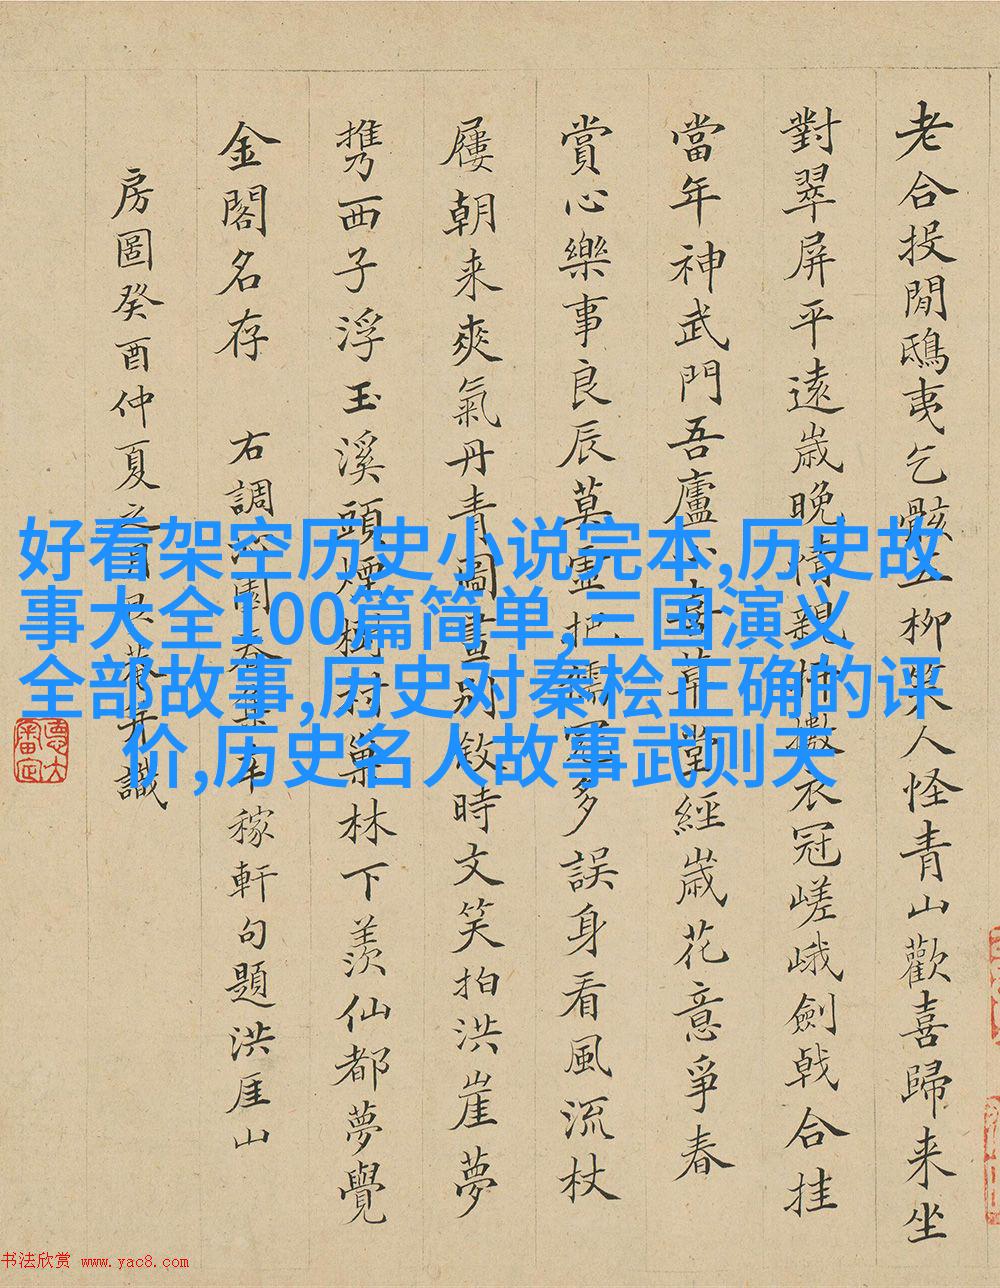 好看架空历史小说完本,历史故
事大全100篇简单,三国演义
全部故事,历史对秦桧正确的评
价,历史名人故事武则天
老合投閒鴟夷乞骸五柳笑人怪青山歡喜歸来坐
對翠屏平遠歳晚情親怕衣冠嵯峨劍戟合挂
當年神武門吾廬小草堂經歳花意爭春
賞心樂事良辰莫虛把儒冠多誤身看風流杖
屨朝来爽氣丹青圖畫別敘時文笑拍洪崖夢
携西子浮玉溪頭煙樹村巢林下羡仙都夢覺
金閣名存 右調沁園春集辛稼軒句題洪厓山
房圖癸酉仲夏之月識
书法欣赏 www.yac8.com